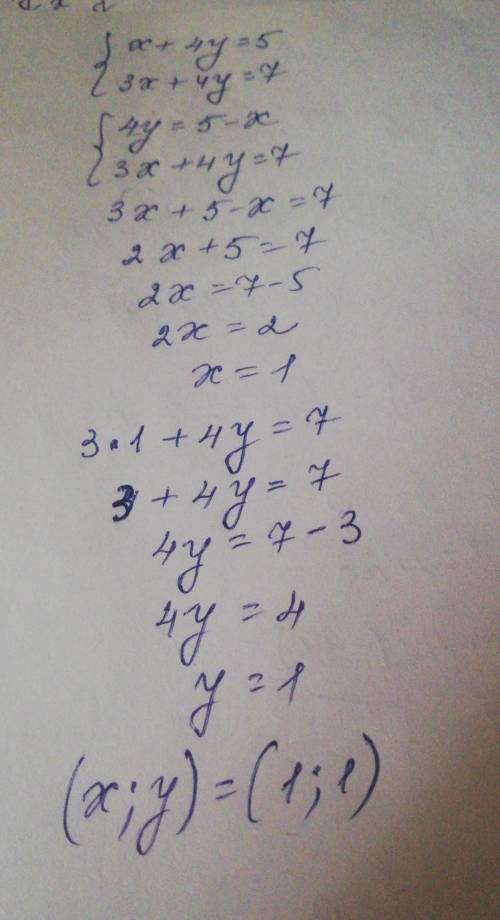 { x + 4y = 5
{ 3x + 4y = 7
{ 4y = 5 - x
{ 3x + 4y = 7
3x + 5 - x = 7
2x + 5 = 7
2x = 7 - 5
2x = 2
x = 1
3 · 1 + 4y = 7
3 + 4y = 7
4y = 7 - 3
4y = 4
y = 1
(x; y) = (1; 1)